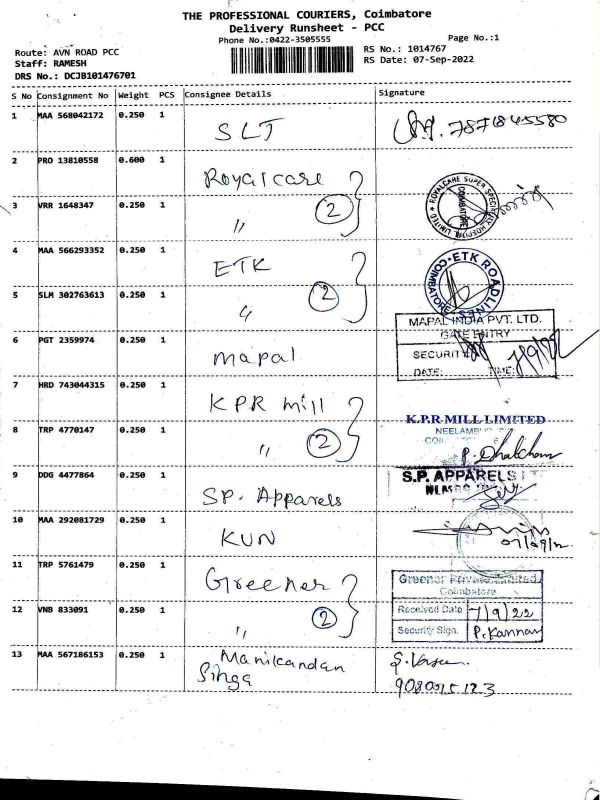 THE PROFESSIONAL COURIERS, Coimbatore
Delivery Runsheet - PCC
Phone No.:0422-3505555
Page No.:1
Route: AVN ROAD PCC
Staff: RAMESH
DRS No.: DCJB101476701
RS No.: 1014767
RS Date: 07-Sep-2022
S No Consignment No Weight PCS Consignee Details Signature
1 MAA 568042172 0.250 1 SLT
2 PRO 13810558 0.600 1 Royalcare
3 VRR 1648347 0.250 1 " 2
ROYALCARE SUPER SPECIALITY HOSPITAL LIMITED
COIMBATORE
4 MAA 566293352 0.250 1 ETK
5 SLM 302763613 0.250 1 " 2
ETK ROADLINES
COIMBATORE
6 PGT 2359974 0.250 1 mapal
MAPAL INDIA PVT. LTD.
GATE ENTRY
SECURITY
DATE: TIME:
7 HRD 743044315 0.250 1 KPR mill
8 TRP 4770147 0.250 1 " 2
K.P.R MILL LIMITED
9 DDG 4477864 0.250 1 SP. Apparels
S.P. APPARELS
10 MAA 292081729 0.250 1 KUN
11 TRP 5761479 0.250 1 Greener
12 VNB 833091 0.250 1 " 2
Greener Private Limited
Coimbatore
Received Date 7/9/22
Security Sign. P. Kannan
13 MAA 567186153 0.250 1 Manikandan
Singa